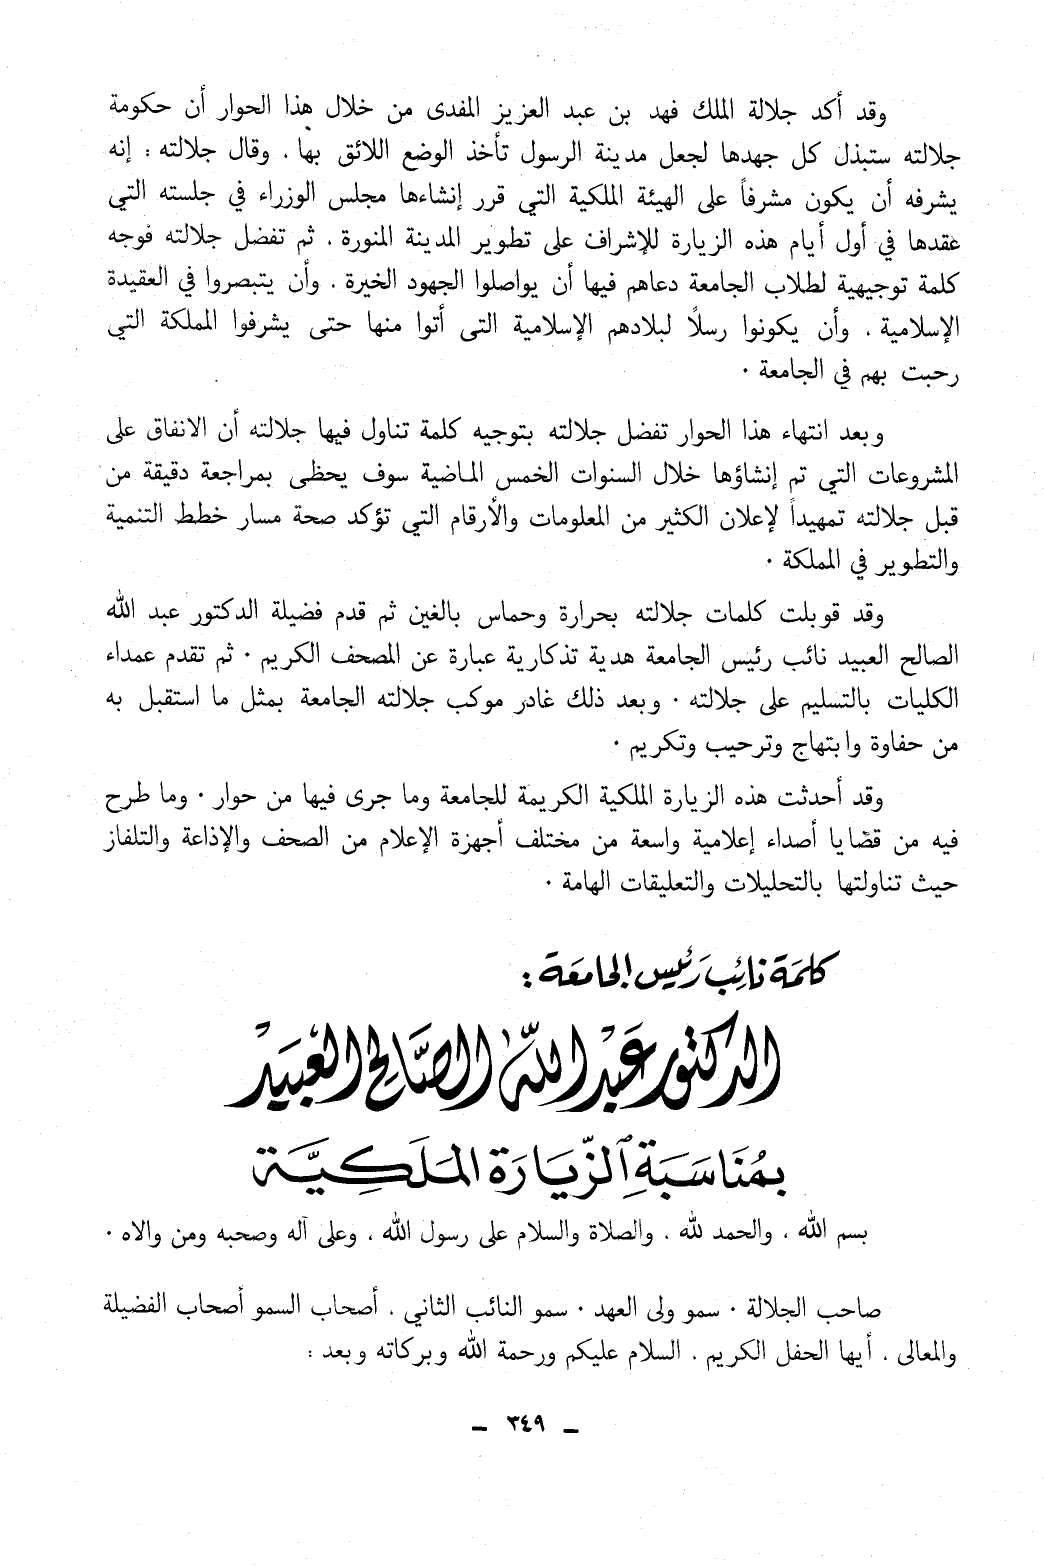 وقد أكد جلالة الملك فهد بن عبد العزيز المفدى من خلال هذا الحوار أن حكومة
جلالته ستبذل كل جهدها لجعل مدينة الرسول تأخذ الوضع اللائق بها ، وقال جلالته : إنه
يشرفه أن يكون مشرفاً على الهيئة الملكية التي قرر إنشاءها مجلس الوزراء في جلسته التي
عقدها في أول أيام هذه الزيارة للإشراف على تطوير المدينة المنورة ، ثم تفضل جلالته فوجه
كلمة توجيهية لطلاب الجامعة دعاهم فيها أن يواصلوا الجهود الخيرة ، وأن يتبصروا في العقيدة
الإسلامية ، وأن يكونوا رسلًا لبلادهم الإسلامية التى أتوا منها حتى يشرفوا المملكة التي
رحبت بهم في الجامعة ٠
وبعد انتهاء هذا الحوار تفضل جلالته بتوجيه كلمة تناول فيها جلالته أن الانفاق على
المشروعات التي تم إنشاؤها خلال السنوات الخمس الماضية سوف يحظى بمراجعة دقيقة من
قبل جلالته تمهيداً لإعلان الكثير من المعلومات والأرقام التي تؤكد صحة مسار خطط التنمية
والتطوير في المملكة ٠
وقد قوبلت كلمات جلالته بحرارة وحماس بالغين ثم قدم فضيلة الدكتور عبد الله
الصالح العبيد نائب رئيس الجامعة هدية تذكارية عبارة عن المصحف الكريم ٠ ثم تقدم عمداء
الكليات بالتسليم على جلالته ٠ وبعد ذلك غادر موكب جلالته الجامعة بمثل ما استقبل به
من حفاوة وابتهاج وترحيب وتكريم ٠
وقد أحدثت هذه الزيارة الملكية الكريمة للجامعة وما جرى فيها من حوار ٠ وما طرح
فيه من قضايا أصداء إعلامية واسعة من مختلف أجهزة الإعلام من الصحف والإذاعة والتلفاز
حيث تناولتها بالتحليلات والتعليقات الهامة ٠
كلمَة نائِب رَئيس الجامعَة :
الدكتور عَبْد اللّه الصَّالح العبَيد
بمُنَاسَبَةِ الزّيَارَة المَلَكِيَّة
بسم الله ، والحمد لله ، والصلاة والسلام على رسول الله ، وعلى آله وصحبه ومن والاه ٠
صاحب الجلالة ٠ سمو ولى العهد ٠ سمو النائب الثاني ، أصحاب السمو أصحاب الفضيلة
والمعالى ، أيها الحفل الكريم ، السلام عليكم ورحمة الله وبركاته وبعد :
ــ ٣٤٩ ــ